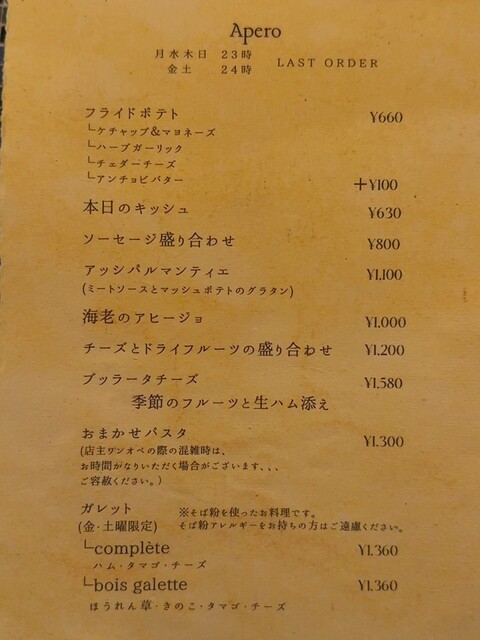 Apero
月水木日 23時
金土 24時
LAST ORDER
フライドポテト ¥660
└ケチャップ&マヨネーズ
└ハーブガーリック
└チェダーチーズ
└アンチョビバター +¥100
本日のキッシュ ¥630
ソーセージ盛り合わせ ¥800
アッシパルマンティエ ¥1,100
(ミートソースとマッシュポテトのグラタン)
海老のアヒージョ ¥1,000
チーズとドライフルーツの盛り合わせ ¥1,200
ブッラータチーズ ¥1,580
季節のフルーツと生ハム添え
おまかせパスタ ¥1,300
(店主ワンオペの際の混雑時は、
お時間がなりいただく場合がございます、、、
ご容赦ください。)
ガレット ※そば粉を使ったお料理です。
(金・土曜限定) そば粉アレルギーをお持ちの方はご遠慮ください。
└complète ¥1,360
ハム・タマゴ・チーズ
└bois galette ¥1,360
ほうれん草・きのこ・タマゴ・チーズ